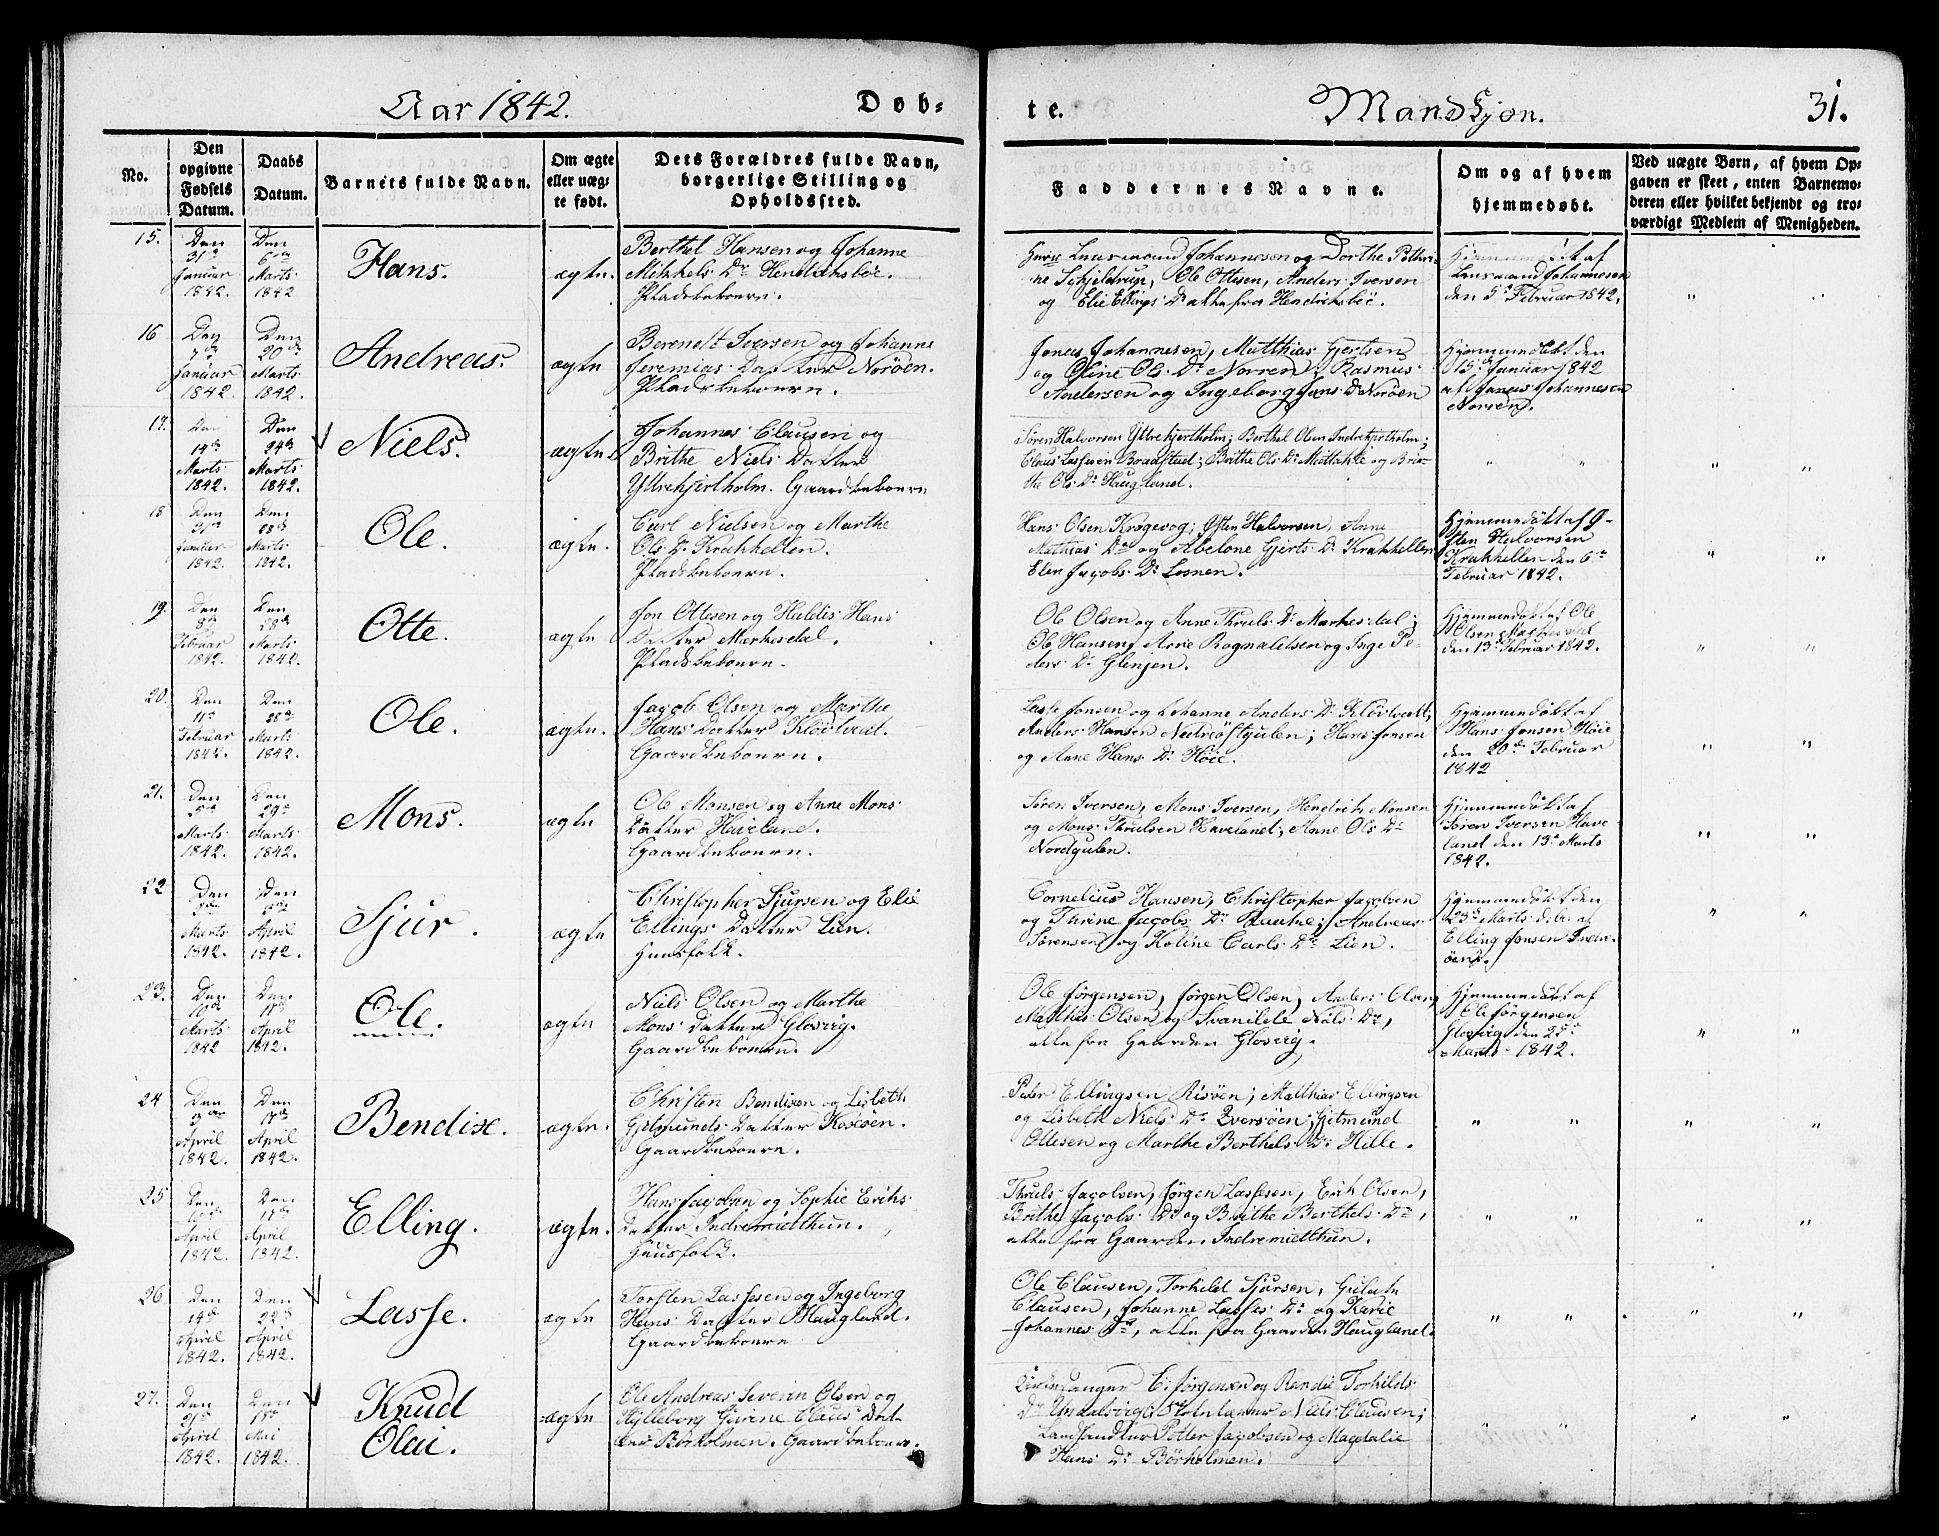 Aar 1842.
Döb-
te.
Mandkjøn.
31.
No.
Den opgivne Fødsels Datum.
Daabs Datum.
Barnets fulde Navn.
Om ægte eller uægte født.
Dets Forældres fulde Navn, borgerlige Stilling og Opholdssted.
Faddernes Navne.
Om og af hvem hjemmedøbt.
Ved uægte Børn, af hvem Opgaven er skeet, enten Barnemoderen eller hvilket bekjendt og troværdigt Medlem af Menigheden.
15.
Den 31te Januar 1842.
Den 6te Marts 1842
Hans.
ægte.
Berthel Hansen og Johanne
Mikkels Dr Hendriksböe.
Pladsbeboere.
Lensmand Johannesen og Dorthe Pethri-
ne Schjeldrup, Ole Ottesen, Anders Iversen
og Elie Ellings Dr alle fra Hendriksböe.
Lensmand Johannesen
den 5te Februar 1842.
16
Den 7de Januar 1842.
Den 20de Marts 1842.
Andreas.
ægte
Berendt Iversen og Johanne
Jeremias Datter Noröen.
Pladsbeboere.
Jonas Johannesen, Matthias Gjertsen
og Oline Ols Dr Norren; Rasmus
Andersen og Ingeborg Jans Dr Noröen
Hjemmedöbt den
15de Januar 1842
af Jonas Johannesen
Norren.
17.
Den 14de Marts 1842.
Den 24de Marts 1842.
Niels.
ægte.
Johannes Clausen og
Brithe Niels Datter
Yttrehjertholm. Gaardbeboere
Sören Halvorsen Yttrehjertholm; Berthel Olsen Indrehjertholm;
Claus Lassesen Bradstad; Brithe Ols Dr Mittakle og Bri-
the Ols Dr Haugland.
18
Den 31te Januar 1842.
Den 28de Marts 1842.
Ole.
ægte.
Carl Nielsen og Marthe
Ols Dr Krakhellen.
Pladsbeboere.
Hans Olsen Krogevog; Østen Halvorsen, Anne
Mathias Dr og Abelone Gjerts Dr Krakhellen
Elen Jacobs Dr Losnen.
Hjemmedöbt af Ø-
sten Halvorsen
Krakhellen den 6te
Februar 1842.
19.
Den 8de Februar 1842.
Den 28de Marts 1842.
Otte.
ægte
Jon Ottesen og Haldis Hans
Datter Merkesdal.
Pladsbeboere.
Ole Olsen og Anne Thruls Dr Markesdal;
Ole Hansen, Arne Ragnaldsen og Inge Pe-
ders Dr Glenjen.
Hjemmedöbt af Ole
Olsen
den 13de Februar 1842.
20.
Den 11te Februar 1842.
Den 28de Marts 1842.
Ole.
ægte.
Jacob Olsen og Marthe
Hans Datter Klövtvedt.
Gaardbeboere.
Lasse Jonsen og Johanne Anders Dr Klövtvedt;
Anders Hansen Nedreöstgulen; Hans Jonsen
og Anne Hans Dr Höie.
Hjemmedöbt af
Hans Jonsen Höie
den 20de Februar
1842
21.
Den 5te Marts 1842.
Den 29de Marts 1842.
Mons.
ægte
Ole Monsen og Anne Mons
Datter Haveland.
Gaardbeboere.
Sören Iversen, Mons Iversen, Hendrik Monsen
og Mons Thrulsen Haveland; Anne Ols Dr
Nordgulen.
Hjemmedöbt af
Sören Iversen Have-
land den 13de Marts
1842.
22
Den Marts 1842.
Den April 1842.
Sjur.
ægte
Christopher Sjursen og Elie
Ellings Datter Lien.
Huusfolk.
Cornelius Hansen, Christopher Jacobsen
og Thrine Jacobs Dr; Andreas
Sörensen og Koline Carls Dr Lien.
Hjemmedöbt den
23de Marts af
Elling Jonsen Indre-
öen.
23.
Den 10de Marts 1842
Den 17de April 1842.
Ole.
ægte
Niels Olsen og Marthe
Mons Datter Glosvig.
Gaardbeboere.
Ole Jörgensen, Jörgen Olsen, Anders Olsen,
Matthias Olsen og Svanilde Niels Dr,
alle fra Gaarden Glosvig.
Hjemmedöbt af
Ole Jörgensen
Glosvig den 25de
Marts 1842.
24
Den 3die April 1842.
Den 17de April 1842.
Bendix.
ægte.
Christen Bendixen og Lisbeth
Gjetmunds Datter Rosöen.
Gaardbeboere.
Peder Ellingsen Risöen; Matthias Ellingsen
og Lisbeth Niels Dr Iversöen; Gjetmund
Ottesen og Marthe Berthels Dr Hille.
25
Den April 1842.
Den 17de April 1842.
Elling.
ægte.
Hans Jacobsen og Sophie Eriks
Datter Indremidthun.
Huusfolk.
Thruls Jacobsen, Jörgen Lassesen, Erik Olsen,
Brithe Jacobs Dr og Brithe Berthels Dr,
alle fra Gaarden Indremidthun.
26
Den 14de April 1842.
Den 22de April 1842.
Lasse.
ægte
Torsten Lassesen og Ingeborg
Hans Datter Haugland.
Gaardbeboere
Ole Clausen, Torkild Sjursen, Gulak
Clausen, Johanne Lasses Dr og Karie
Johannes Dr, alle fra Gaarden Haugland.
27.
Den 21de April 1842.
Den 18de Mai 1842.
Knud
Olai.
ægte
Ole Andreas Severin Olsen og
Hylleborg Gurine Claus Dat-
ter Börholmen. Gaardbeboere.
Kirkesanger E. Jörgensen og Randie Torkilds
Dr Niels Clausen;
Landhandler Petter Jacobsen og Magdalie
Hans Dr Börholmen.